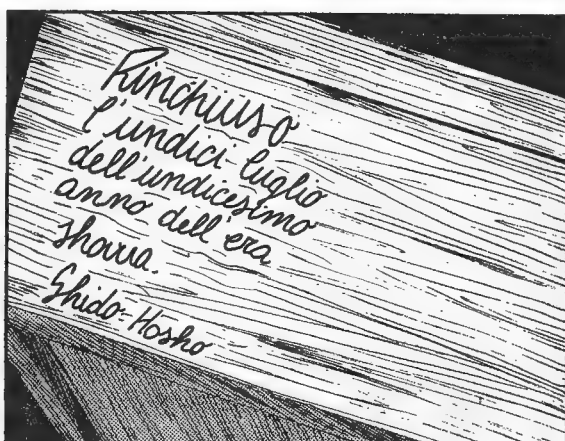 Rinchiuso
l'undici luglio
dell'undicesimo
anno dell'era
showa.
Ghido-Hosho